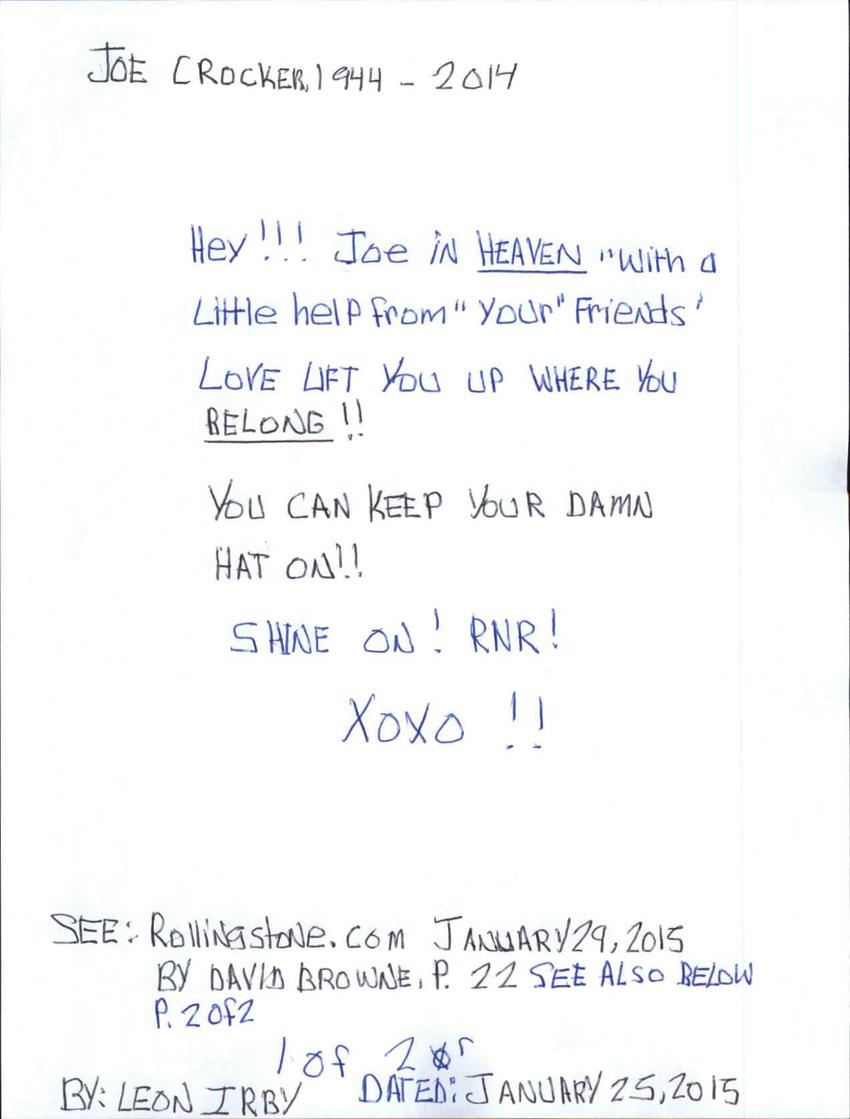 JOE CROCKER, 1944 - 2014
Hey!!! Joe iN HEAVEN "With a
Little help from "your" Friends'
LOVE LIFT YOU UP WHERE YOU
BELONG!!
YOU CAN KEEP YOUR DAMN
HAT ON!!
SHINE ON! RNR!
XOXO !!
SEE: RolliNgstoNe.com JANUARY 29, 2015
BY DAVID BROWNE, P. 22 SEE ALSO BELOW
P. 2 of 2
1 of 2
BY: LEON IRBY DATED: JANUARY 25, 2015